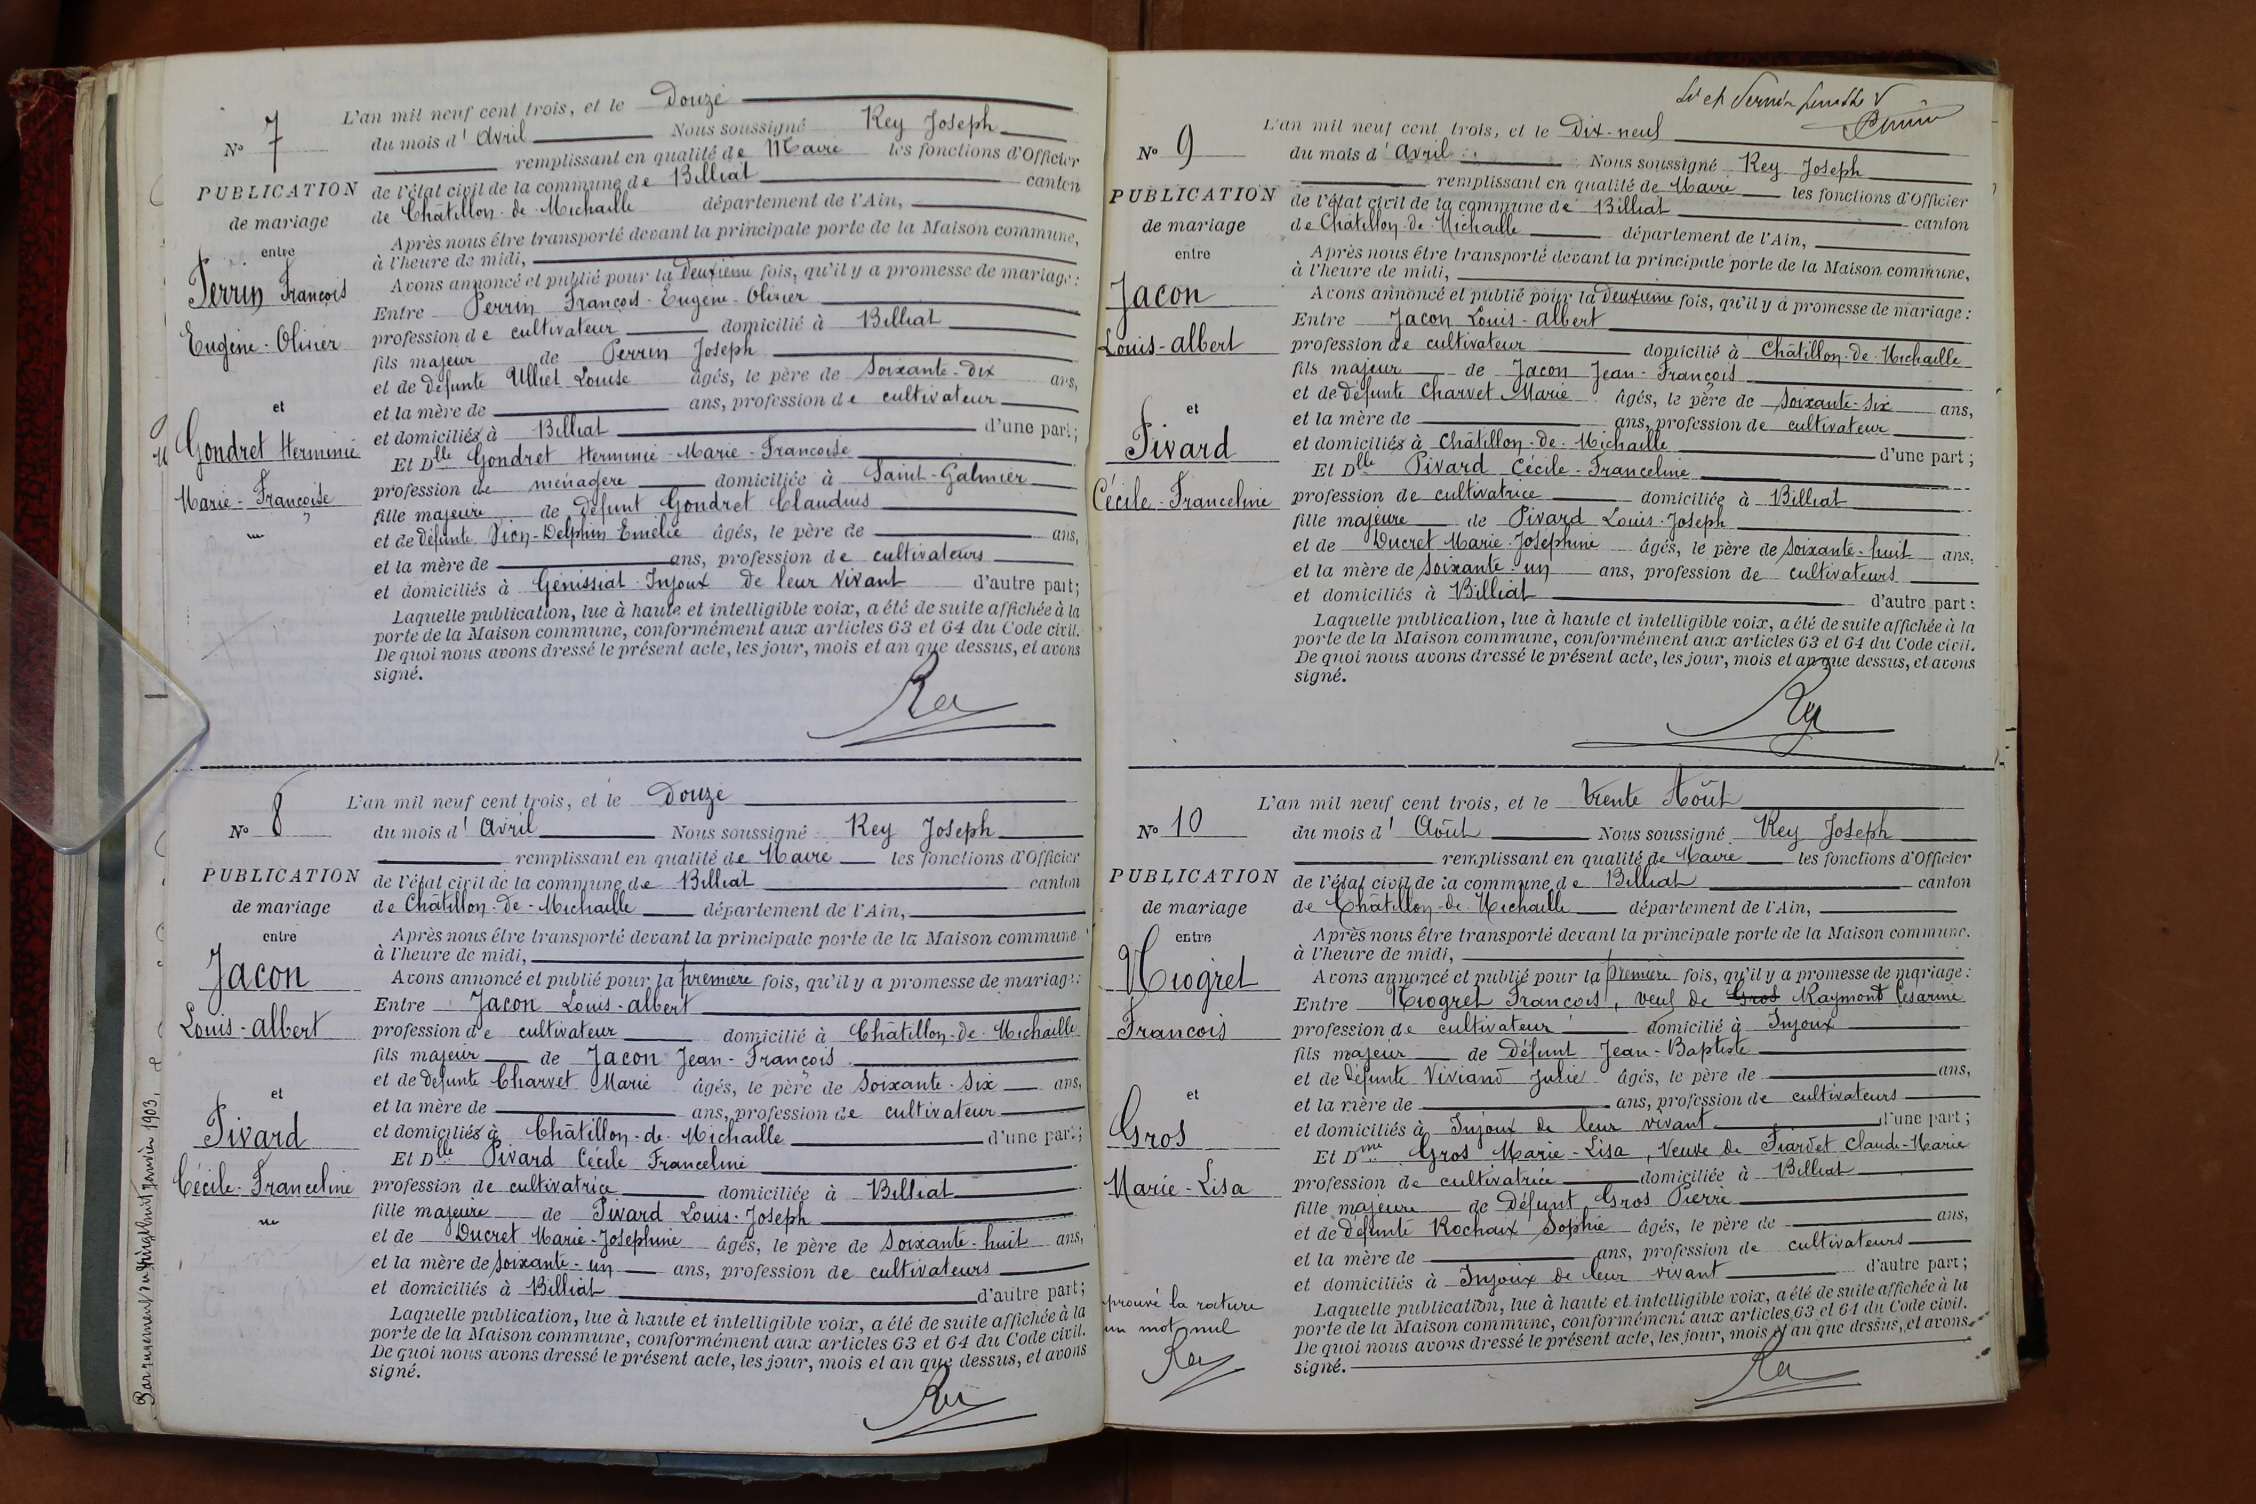 L'an mil neuf cent trois, et le Douze
No 7
du mois d'Avril Nous soussigné Rey Joseph
remplissant en qualité de Maire les fonctions d'Officier
PUBLICATION
de l'état civil de la commune de Billiat canton
de mariage
de Châtillon-de-Michaille département de l'Ain,
entre
Après nous être transporté devant la principale porte de la Maison commune,
à l'heure de midi,
Perrin François
Avons annoncé et publié pour la Deuxième fois, qu'il y a promesse de mariage :
Entre Perrin François-Eugène-Olivier
Eugène-Olivier
profession de cultivateur domicilié à Billiat
fils majeur de Perrin Joseph
et de défunte Ulliet Louise âgés, le père de Soixante-dix ans,
et
et la mère de ans, profession de cultivateur
et domiciliés à Billiat d'une part ;
Gondret Herminie
Et Dlle Gondret Herminie-Marie-Françoise
Marie-Françoise
profession de ménagère domiciliée à Saint-Galmier
fille majeure de défunt Gondret Claudius
et de défunte Vion-Delphin Emélie âgés, le père de ans,
et la mère de ans, profession de cultivateurs
et domiciliés à Génissiat-Injoux de leur vivant d'autre part;
Laquelle publication, lue à haute et intelligible voix, a été de suite affichée à la
porte de la Maison commune, conformément aux articles 63 et 64 du Code civil.
De quoi nous avons dressé le présent acte, les jour, mois et an que dessus, et avons
signé.
Rey
L'an mil neuf cent trois, et le Douze
No 8
du mois d'Avril Nous soussigné Rey Joseph
remplissant en qualité de Maire les fonctions d'Officier
PUBLICATION
de l'état civil de la commune de Billiat canton
de mariage
de Châtillon-de-Michaille département de l'Ain,
entre
Après nous être transporté devant la principale porte de la Maison commune
à l'heure de midi,
Jacon
Avons annoncé et publié pour la première fois, qu'il y a promesse de mariage :
Entre Jacon Louis-Albert
Louis-Albert
profession de cultivateur domicilié à Châtillon-de-Michaille
fils majeur de Jacon Jean-François
et de défunte Charvet Marie âgés, le père de Soixante-Six ans,
et
et la mère de ans, profession de cultivateur
Pivard
et domiciliés à Châtillon-de-Michaille d'une part;
Et Dlle Pivard Cécile Franceline
Cécile-Franceline
profession de cultivatrice domiciliée à Billiat
fille majeure de Pivard Louis-Joseph
et de Ducret Marie-Josephine âgés, le père de Soixante-huit ans,
et la mère de Soixante-un ans, profession de cultivateurs
et domiciliés à Billiat d'autre part;
Laquelle publication, lue à haute et intelligible voix, a été de suite affichée à la
porte de la Maison commune, conformément aux articles 63 et 64 du Code civil.
De quoi nous avons dressé le présent acte, les jour, mois et an que dessus, et avons
signé.
Rey
Par jugement du Vingthuit Janvier 1903,
L'an mil neuf cent trois, et le Dix-neuf
No 9
du mois d'Avril Nous soussigné Rey Joseph
remplissant en qualité de Maire les fonctions d'Officier
PUBLICATION
de l'état civil de la commune de Billiat canton
de mariage
de Châtillon-de-Michaille département de l'Ain,
entre
Après nous être transporté devant la principale porte de la Maison commune,
à l'heure de midi,
Jacon
Avons annoncé et publié pour la deuxième fois, qu'il y a promesse de mariage :
Entre Jacon Louis-Albert
Louis-Albert
profession de cultivateur domicilié à Châtillon-de-Michaille
fils majeur de Jacon Jean-François
et de défunte Charvet Marie âgés, le père de Soixante-Six ans,
et
et la mère de ans, profession de cultivateur
Pivard
et domiciliés à Châtillon-de-Michaille d'une part ;
Et Dlle Pivard Cécile-Franceline
Cécile-Franceline
profession de cultivatrice domiciliée à Billiat
fille majeure de Pivard Louis-Joseph
et de Ducret Marie-Joséphine âgés, le père de Soixante-huit ans,
et la mère de Soixante-un ans, profession de cultivateurs
et domiciliés à Billiat d'autre part :
Laquelle publication, lue à haute et intelligible voix, a été de suite affichée à la
porte de la Maison commune, conformément aux articles 63 et 64 du Code civil.
De quoi nous avons dressé le présent acte, les jour, mois et an que dessus, et avons
signé.
Rey
L'an mil neuf cent trois, et le trente Août
No 10
du mois d'Août Nous soussigné Rey Joseph
remplissant en qualité de Maire les fonctions d'Officier
PUBLICATION
de l'état civil de la commune de Billiat canton
de mariage
de Châtillon-de-Michaille département de l'Ain,
entre
Après nous être transporté devant la principale porte de la Maison commune.
à l'heure de midi,
Miogret
Avons annoncé et publié pour la première fois, qu'il y a promesse de mariage :
Entre Miogret François, veuf de Gros Raymond Césarine
François
profession de cultivateur domicilié à Injoux
fils majeur de Défunt Jean-Baptiste
et de défunte Viviand Julie âgés, le père de ans,
et
et la mère de ans, profession de cultivateurs
Gros
et domiciliés à Injoux de leur vivant d'une part ;
Et Dme Gros Marie-Lisa, Veuve de Fiardet Claude-Marie
Marie-Lisa
profession de cultivatrice domiciliée à Billiat
fille majeure de Défunt Gros Pierre
et de défunte Rochaix Sophie âgés, le père de ans,
et la mère de ans, profession de cultivateurs
et domiciliés à Injoux de leur vivant d'autre part ;
prouvé la rature
un mot nul
Rey
Laquelle publication, lue à haute et intelligible voix, a été de suite affichée à la
porte de la Maison commune, conformément aux articles 63 et 64 du Code civil.
De quoi nous avons dressé le présent acte, les jour, mois et an que dessus, et avons
signé.
Rey